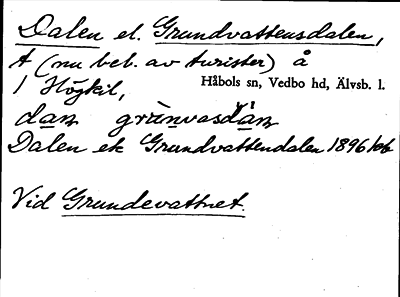 Dalen el. Grundvattensdalen,
t (nu beb. av turister) å
1 Högkil, Håbols sn, Vedbo hd, Älvsb. l.
Dalen el Grundvattendalen 1896
Vid Grundevattnet.